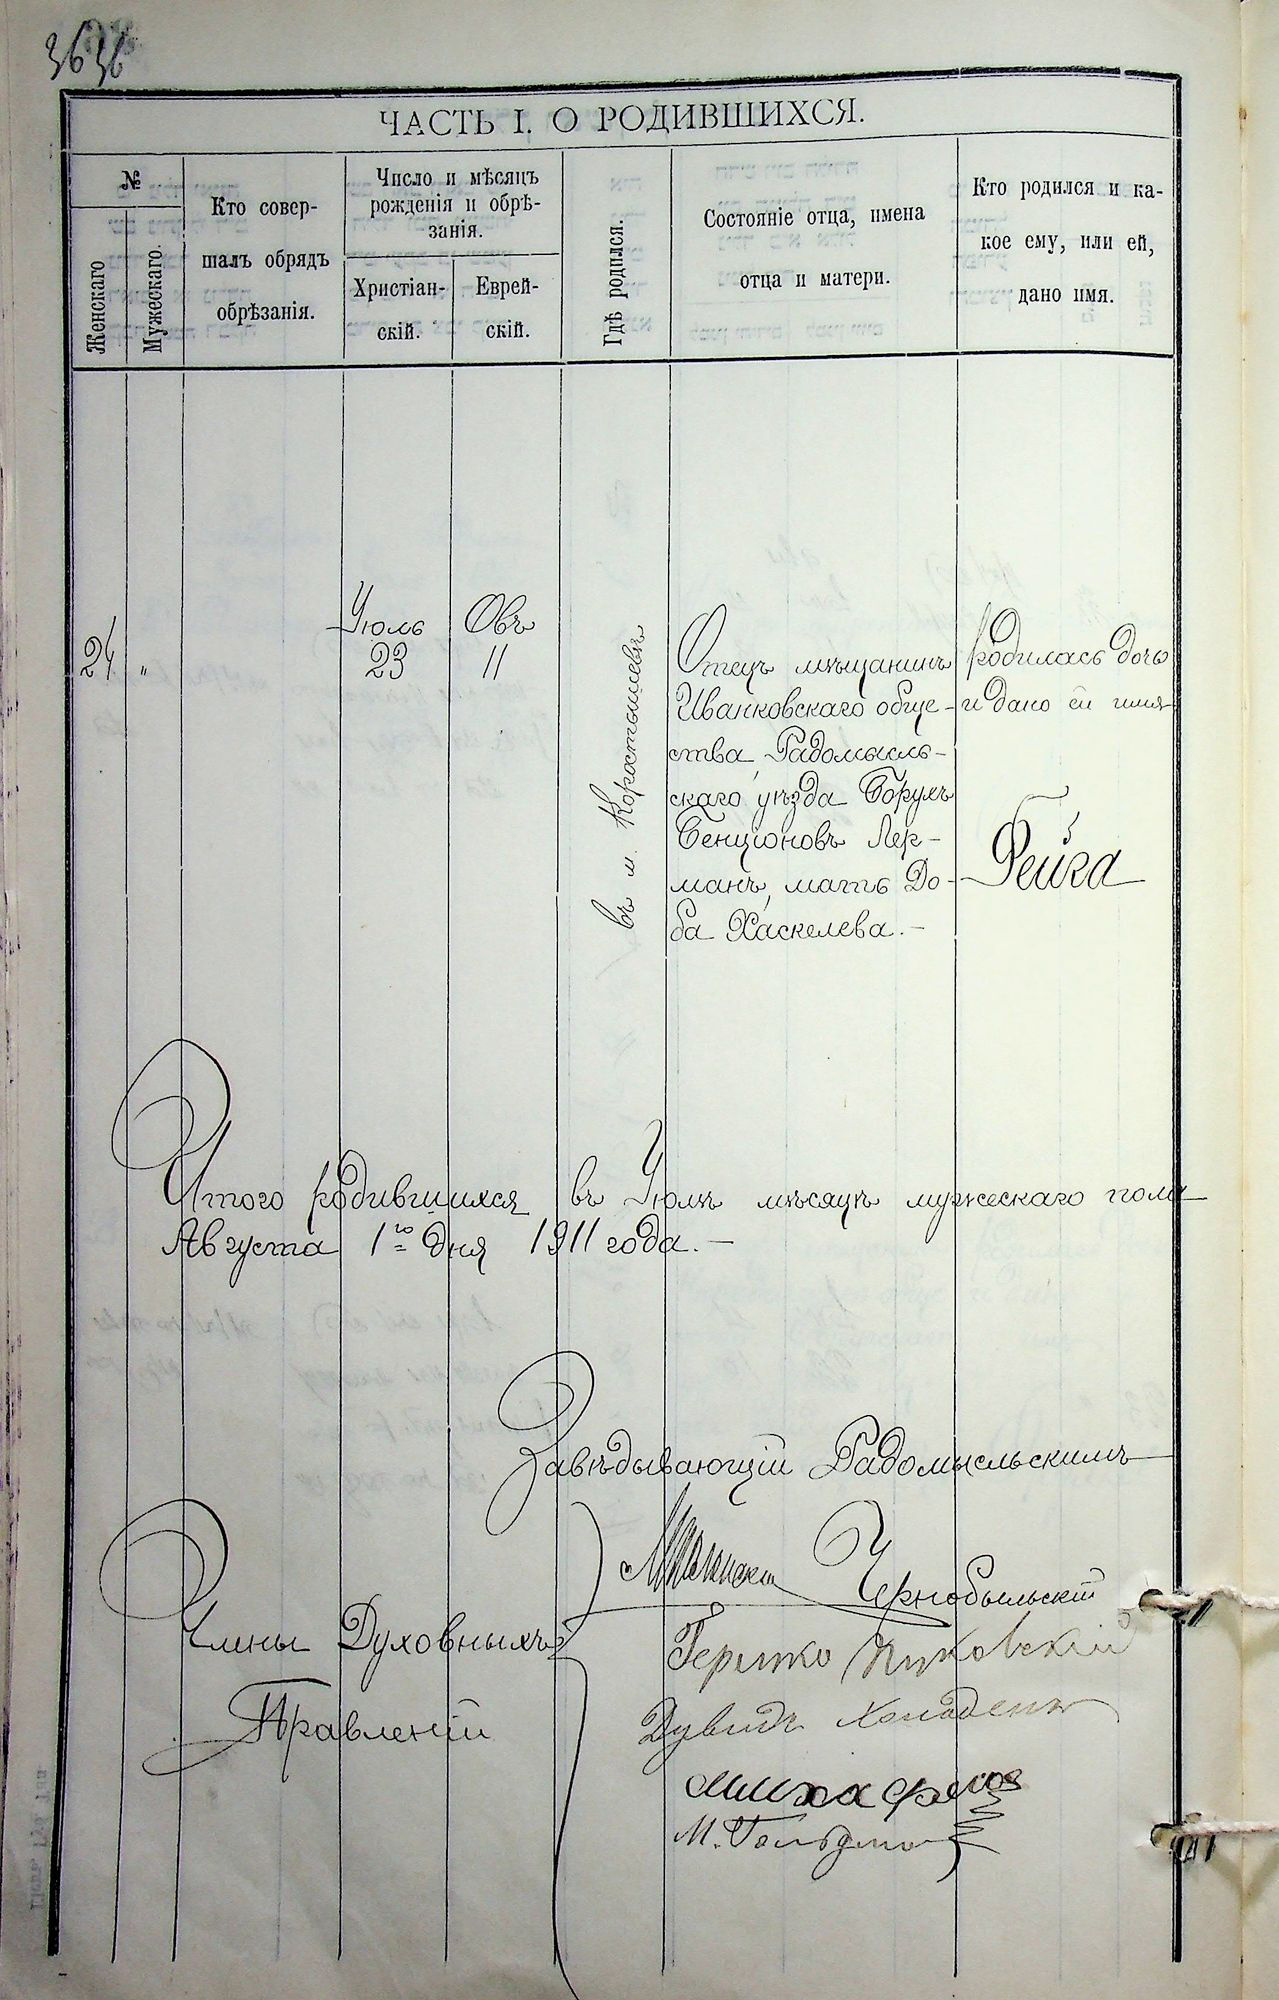 36 36
ЧАСТЬ I. О РОДИВШИХСЯ.
№
Женскаго
Мужескаго.
Кто совер-
шалъ обрядъ
обрѣзанія.
Число и мѣсяцъ
рожденія и обрѣ-
занія.
Христіан-
скій.
Еврей-
скій.
Гдѣ родился.
Состояніе отца, имена
отца и матери.
Кто родился и ка-
кое ему, или ей,
дано имя.
24 "
Іюль
23
Овъ
11
въ м. Коростышевѣ
Отецъ мѣщанинъ
Иванковскаго обще-
ства, Радомысль-
скаго уѣзда Борухъ
Бенціоновъ Лер-
манъ, мать До-
ба Хаскелева.-
родилась дочь
и дано ей имя
Фейга
Итого родившихся въ Іюлѣ мѣсяцѣ мужескаго пола
Августа 1го дня 1911 года.-
Завѣдывающій Радомысльскимъ
Чернобыльскій
Члены Духовныхъ
Правленій
Гершко
Дувидъ
М. Гольдман